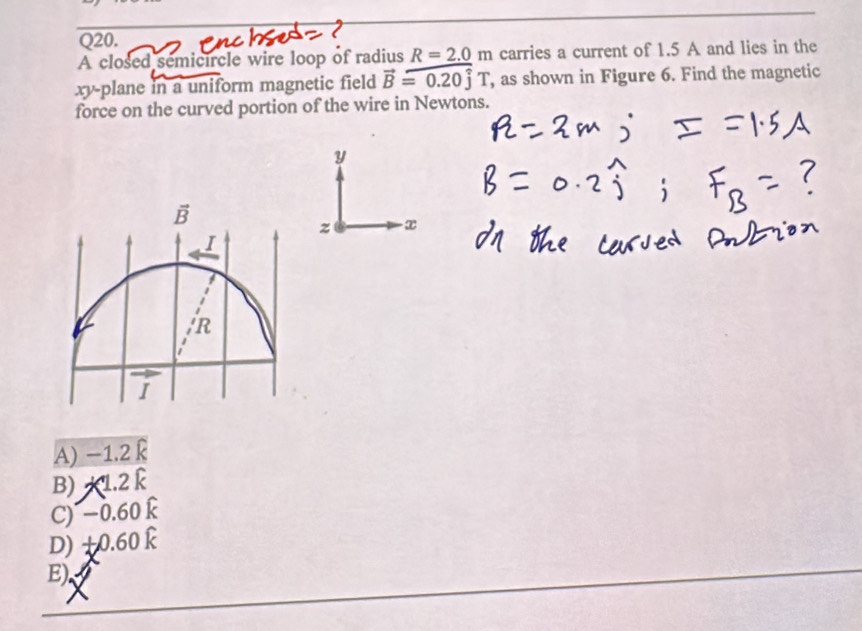 Q20.
enclosed = ?
A closed semicircle wire loop of radius R = 2.0 m carries a current of 1.5 A and lies in the
xy-plane in a uniform magnetic field B⃗ = 0.20 ĵ T, as shown in Figure 6. Find the magnetic
force on the curved portion of the wire in Newtons.
R = 2m ; I = 1.5A
B = 0.2 ĵ ; F_B = ?
on the curved portion
y
z x
B⃗
I
R
I
A) −1.2 k̂
B) +1.2 k̂
C) −0.60 k̂
D) +0.60 k̂
E)